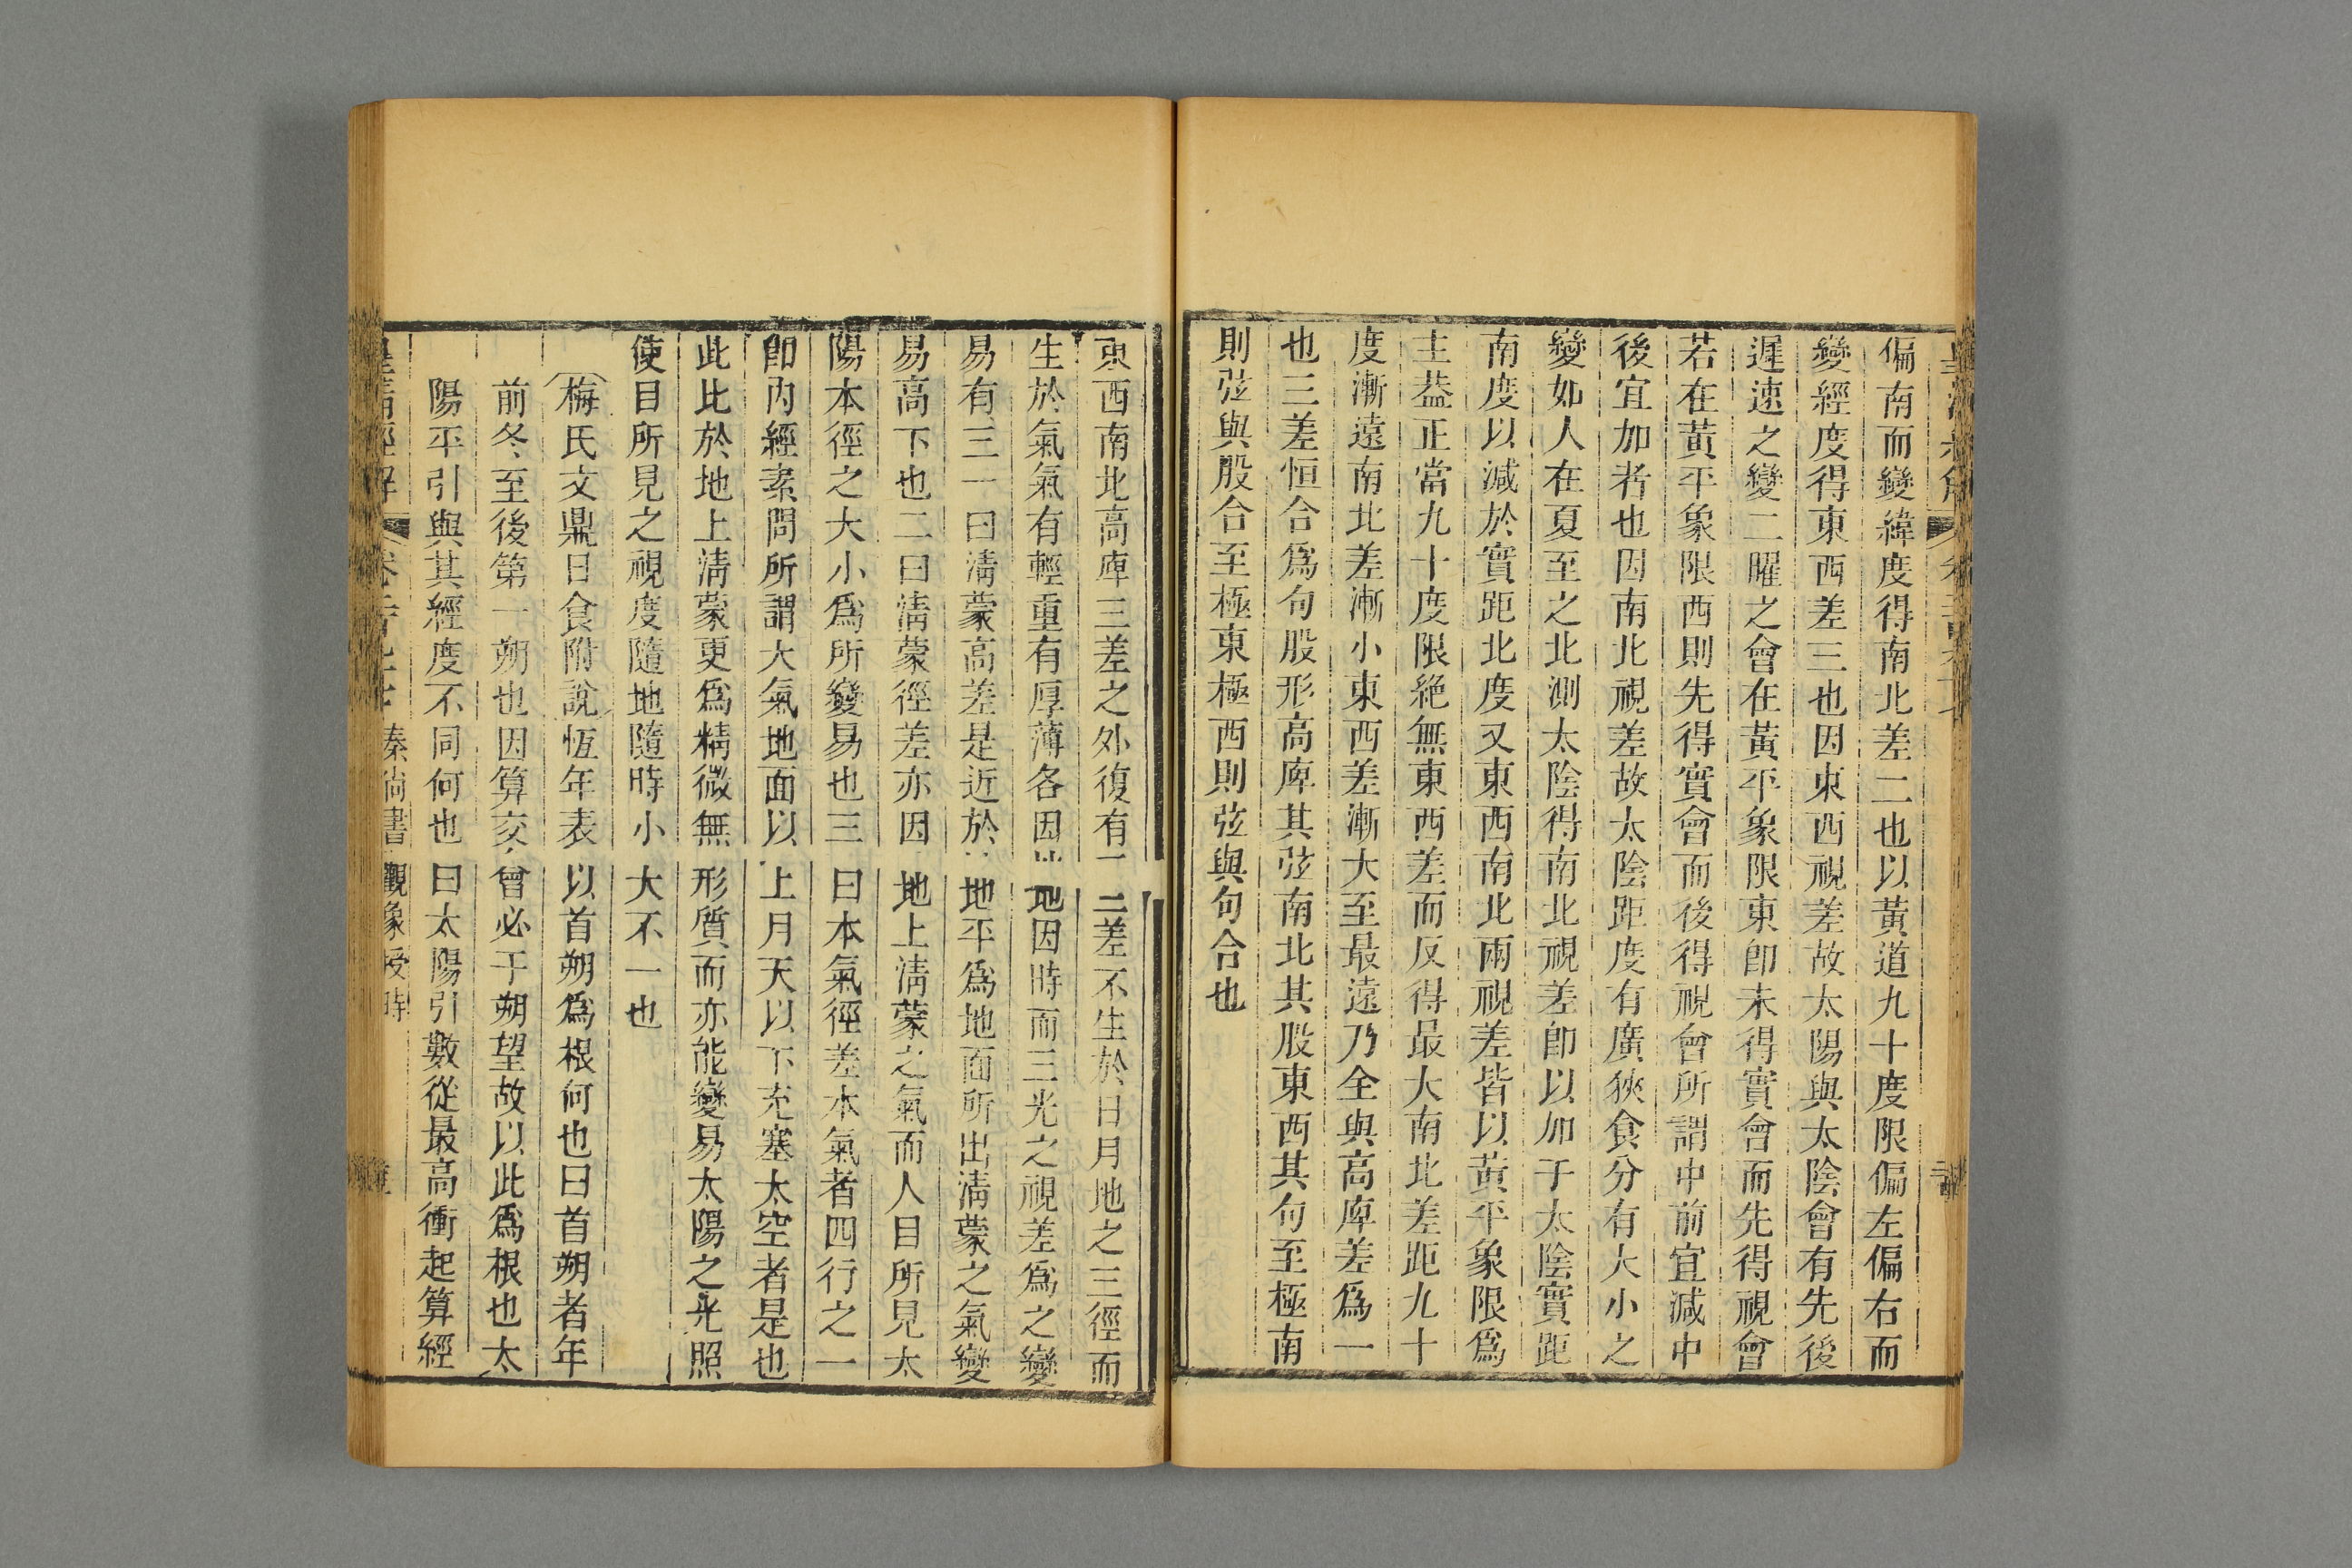 偏南而變緯度得南北差二也以黃道九十度限偏左偏右而
變經度得東西差三也因東西視差故太陽與太陰會有先後
遲速之變二曜之會在黃平象限東卽未得實會而先得視會
若在黃平象限西則先得實會而後得視會所謂中前宜減中
後宜加者也因南北視差故太陰距度有廣狹食分有大小之
變如人在夏至之北測太陰得南北視差卽以加于太陰實距
南度以減於實距北度又東西南北兩視差皆以黃平象限爲
主葢正當九十度限絶無東西差而反得最大南北差距九十
度漸遠南北差漸小東西差漸大至最遠乃全與高庳差爲一
也三差恒合爲句股形高庳其弦南北其股東西其句至極南
則弦與股合至極東極西則弦與句合也
東西南北高庳三差之外復有二差不生於日月地之三徑而
生於氣氣有輕重有厚薄各因地因時而三光之視差爲之變
易有三一曰淸蒙高差是近於地平爲地面所出淸蒙之氣變
易高下也二曰淸蒙徑差亦因地上淸蒙之氣而人目所見太
陽本徑之大小爲所變易也三曰本氣徑差本氣者四行之一
卽內經素問所謂大氣地面以上月天以下充塞太空者是也
此比於地上淸蒙更爲精微無形質而亦能變易太陽之光照
使目所見之視度隨地隨時小大不一也
梅氏文鼎日食附說恆年表以首朔爲根何也曰首朔者年
前冬至後第一朔也因算交會必于朔望故以此爲根也太
陽平引與其經度不同何也曰太陽引數從最高衝起算經
皇淸經解 秦尚書觀象授時